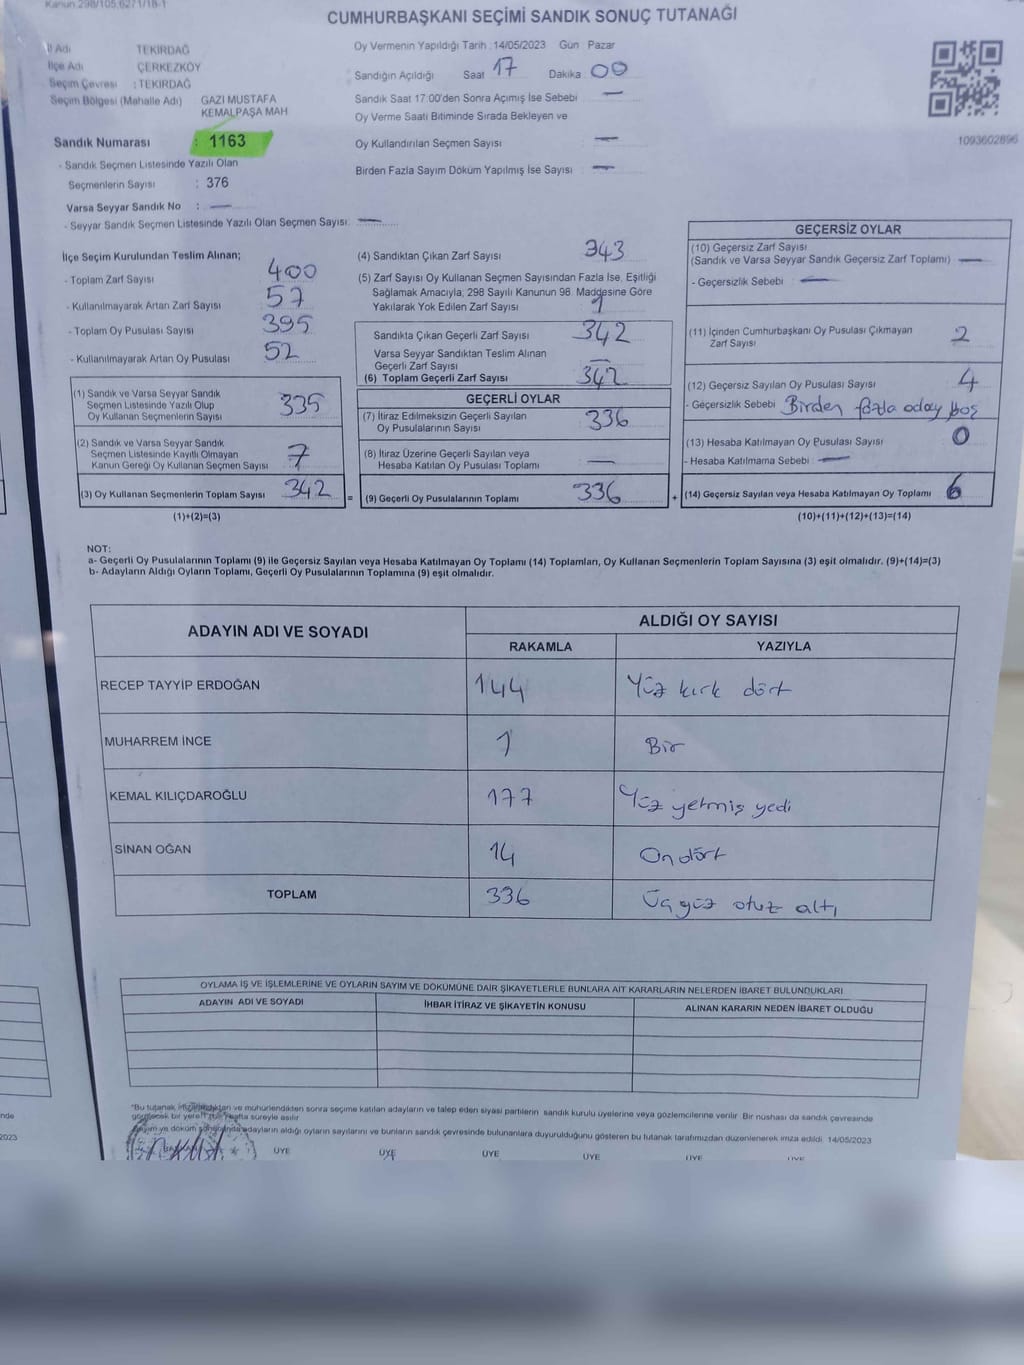 Kanun 298/105,6271/18-1
CUMHURBAŞKANI SEÇİMİ SANDIK SONUÇ TUTANAĞI
İl Adı TEKİRDAĞ
İlçe Adı ÇERKEZKÖY
Seçim Çevresi : TEKİRDAĞ
Seçim Bölgesi (Mahalle Adı) GAZİ MUSTAFA
KEMALPAŞA MAH
Sandık Numarası : 1163
- Sandık Seçmen Listesinde Yazılı Olan
Seçmenlerin Sayısı : 376
Varsa Seyyar Sandık No : —
- Seyyar Sandık Seçmen Listesinde Yazılı Olan Seçmen Sayısı: —
Oy Vermenin Yapıldığı Tarih : 14/05/2023 Gün : Pazar
Sandığın Açıldığı Saat 17 Dakika 00
Sandık Saat 17:00'den Sonra Açımış İse Sebebi —
Oy Verme Saati Bitiminde Sırada Bekleyen ve
Oy Kullandırılan Seçmen Sayısı —
Birden Fazla Sayım Döküm Yapılmış İse Sayısı —
1093602896
İlçe Seçim Kurulundan Teslim Alınan;
- Toplam Zarf Sayısı 400
- Kullanılmayarak Artan Zarf Sayısı 57
- Toplam Oy Pusulası Sayısı 395
- Kullanılmayarak Artan Oy Pusulası 52
(1) Sandık ve Varsa Seyyar Sandık
Seçmen Listesinde Yazılı Olup
Oy Kullanan Seçmenlerin Sayısı 335
(2) Sandık ve Varsa Seyyar Sandık
Seçmen Listesinde Kayıtlı Olmayan
Kanun Gereği Oy Kullanan Seçmen Sayısı 7
(3) Oy Kullanan Seçmenlerin Toplam Sayısı 342 =
(1)+(2)=(3)
(4) Sandıktan Çıkan Zarf Sayısı 343
(5) Zarf Sayısı Oy Kullanan Seçmen Sayısından Fazla İse, Eşitliği
Sağlamak Amacıyla, 298 Sayılı Kanunun 98. Maddesine Göre
Yakılarak Yok Edilen Zarf Sayısı 1
Sandıkta Çıkan Geçerli Zarf Sayısı 342
Varsa Seyyar Sandıktan Teslim Alınan
Geçerli Zarf Sayısı —
(6) Toplam Geçerli Zarf Sayısı 342
GEÇERLİ OYLAR
(7) İtiraz Edilmeksizin Geçerli Sayılan
Oy Pusulalarının Sayısı 336
(8) İtiraz Üzerine Geçerli Sayılan veya
Hesaba Katılan Oy Pusulası Toplamı —
(9) Geçerli Oy Pusulalarının Toplamı 336 +
GEÇERSİZ OYLAR
(10) Geçersiz Zarf Sayısı
(Sandık ve Varsa Seyyar Sandık Geçersiz Zarf Toplamı) —
- Geçersizlik Sebebi —
(11) İçinden Cumhurbaşkanı Oy Pusulası Çıkmayan
Zarf Sayısı 2
(12) Geçersiz Sayılan Oy Pusulası Sayısı 4
- Geçersizlik Sebebi Birden fazla aday boş
(13) Hesaba Katılmayan Oy Pusulası Sayısı 0
- Hesaba Katılmama Sebebi —
(14) Geçersiz Sayılan veya Hesaba Katılmayan Oy Toplamı 6
(10)+(11)+(12)+(13)=(14)
NOT:
a- Geçerli Oy Pusulalarının Toplamı (9) ile Geçersiz Sayılan veya Hesaba Katılmayan Oy Toplamı (14) Toplamları, Oy Kullanan Seçmenlerin Toplam Sayısına (3) eşit olmalıdır. (9)+(14)=(3)
b- Adayların Aldığı Oyların Toplamı, Geçerli Oy Pusulalarının Toplamına (9) eşit olmalıdır.
ADAYIN ADI VE SOYADI ALDIĞI OY SAYISI
RAKAMLA YAZIYLA
RECEP TAYYİP ERDOĞAN 144 Yüz kırk dört
MUHARREM İNCE 1 Bir
KEMAL KILIÇDAROĞLU 177 Yüz yetmiş yedi
SİNAN OĞAN 14 On dört
TOPLAM 336 Üç yüz otuz altı
OYLAMA İŞ VE İŞLEMLERİNE VE OYLARIN SAYIM VE DÖKÜMÜNE DAİR ŞİKAYETLERLE BUNLARA AİT KARARLARIN NELERDEN İBARET BULUNDUKLARI
ADAYIN ADI VE SOYADI İHBAR İTİRAZ VE ŞİKAYETİN KONUSU ALINAN KARARIN NEDEN İBARET OLDUĞU
"Bu tutanak ve mühürlendikten sonra seçime katılan adayların ve talep eden siyasi partilerin sandık kurulu üyelerine veya gözlemcilerine verilir. Bir nüshası da sandık çevresinde
bir yere hafta süreyle asılır
ve döküm adayların aldığı oyların sayılarını ve bunların sandık çevresinde bulunanlara duyurulduğunu gösteren bu tutanak tarafımızdan düzenlenerek imza edildi 14/05/2023
ÜYE ÜYE ÜYE ÜYE ÜYE ÜYE
2023